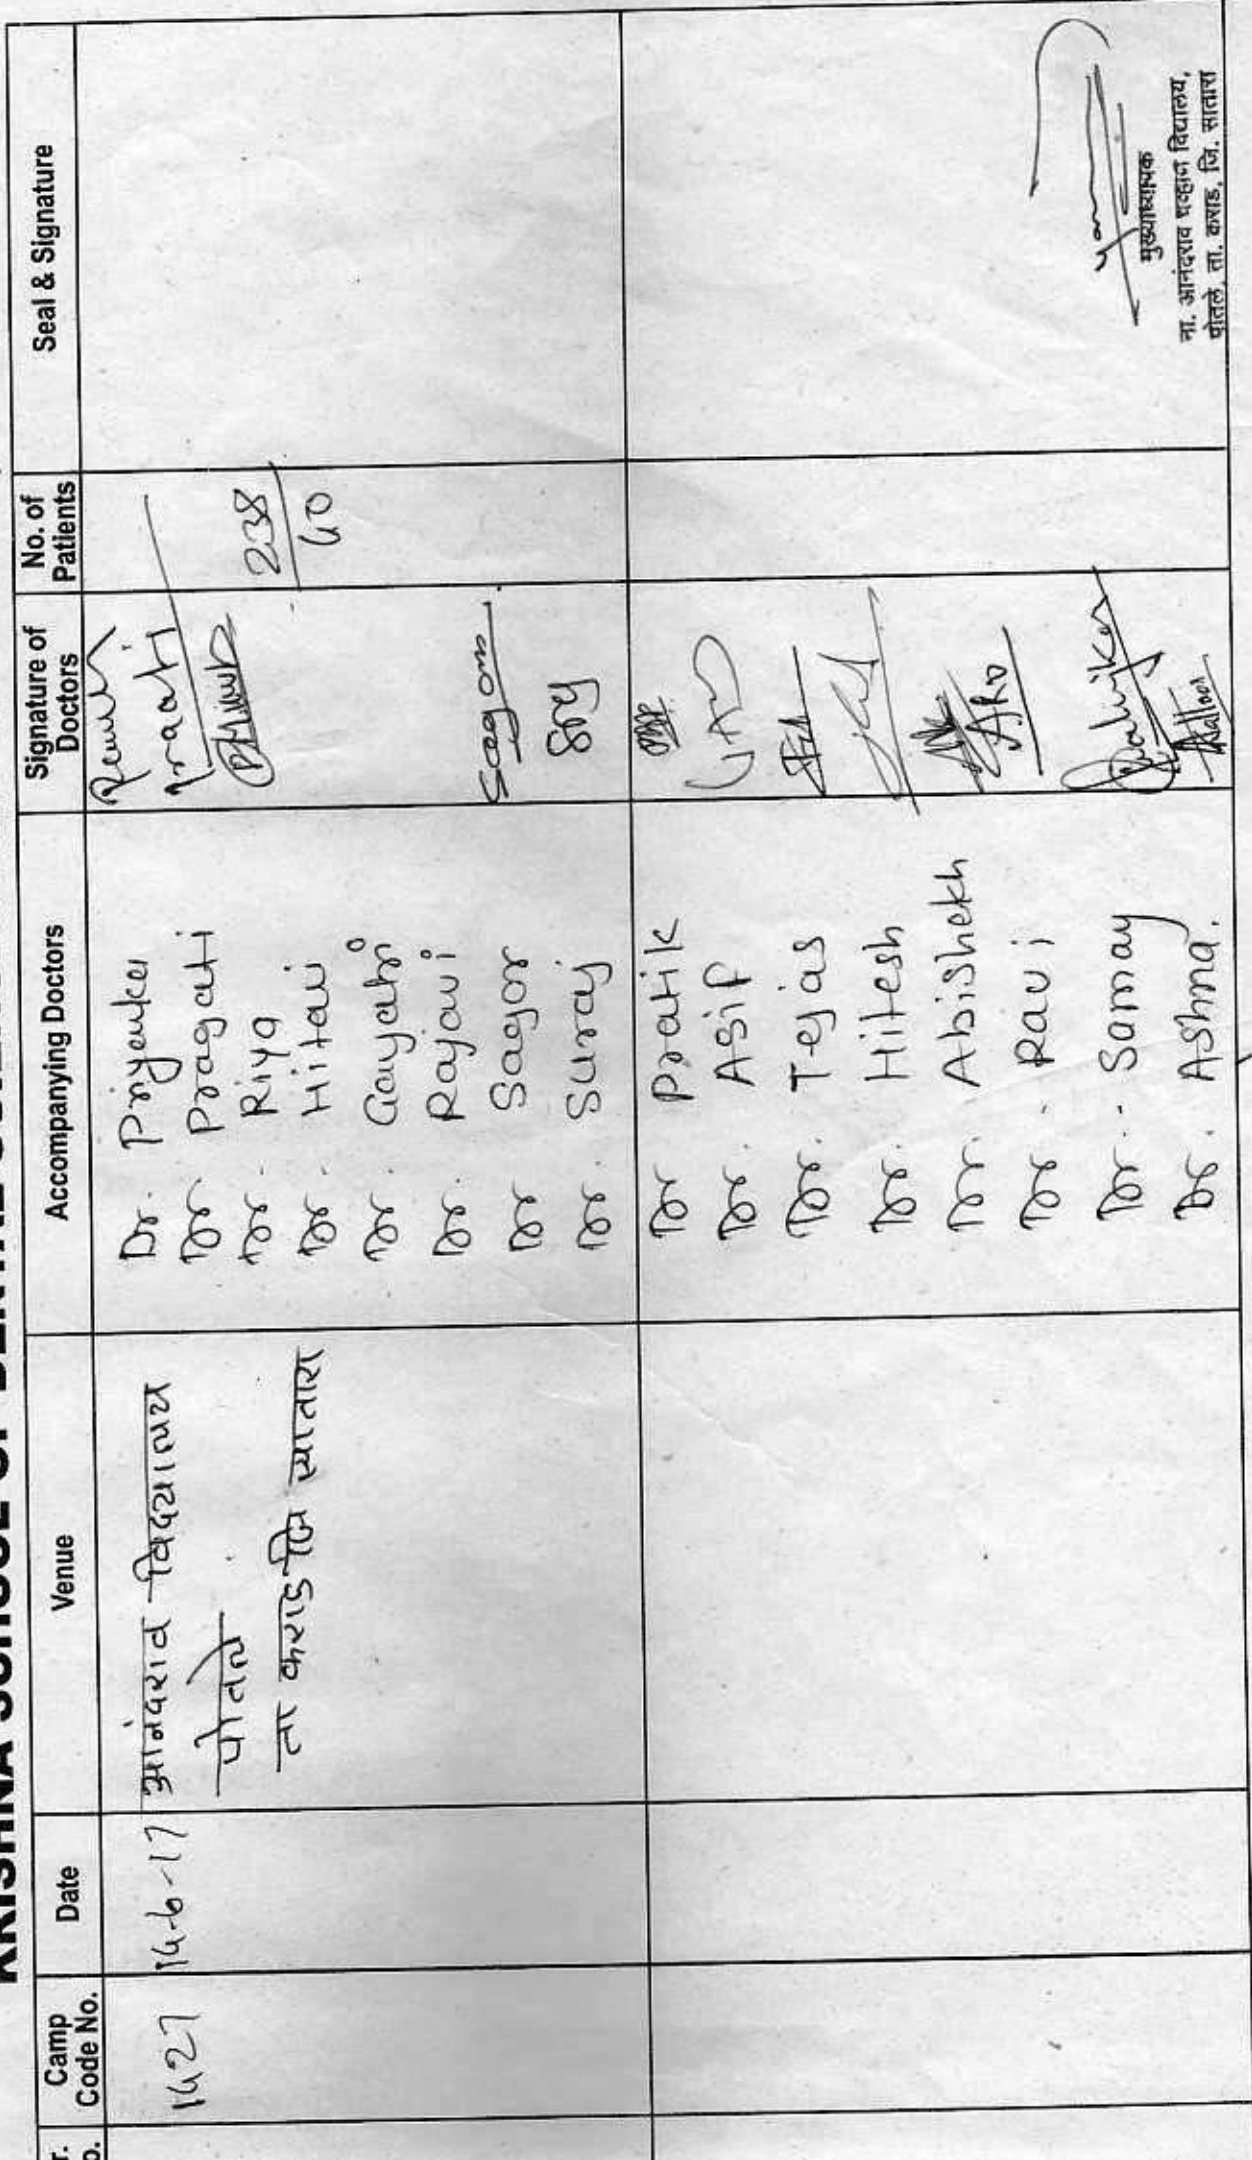 KRISHNA SCHOOL OF DENTAL
Camp Code No.
Date
Venue
Accompanying Doctors
Signature of Doctors
No. of Patients
Seal & Signature
1427
14-6-17
आनंदराव विद्यालय
पोतले
ता कराड जि सातारा
Dr. Priyanka
Dr Pragati
Dr. Riya
Dr. Hitavi
Dr. Gayatri
Dr. Rajavi
Dr Sagar
Dr. Suraj
Pragati
Sagar
238
40
Dr Pratik
Dr. Asif
Dr. Tejas
Dr. Hitesh
Dr. Abishekh
Dr. Ravi
Dr. Samay
Dr. Ashma.
मुख्याध्यापक
ना. आनंदराव चव्हाण विद्यालय,
पोतले, ता. कराड, जि. सातारा